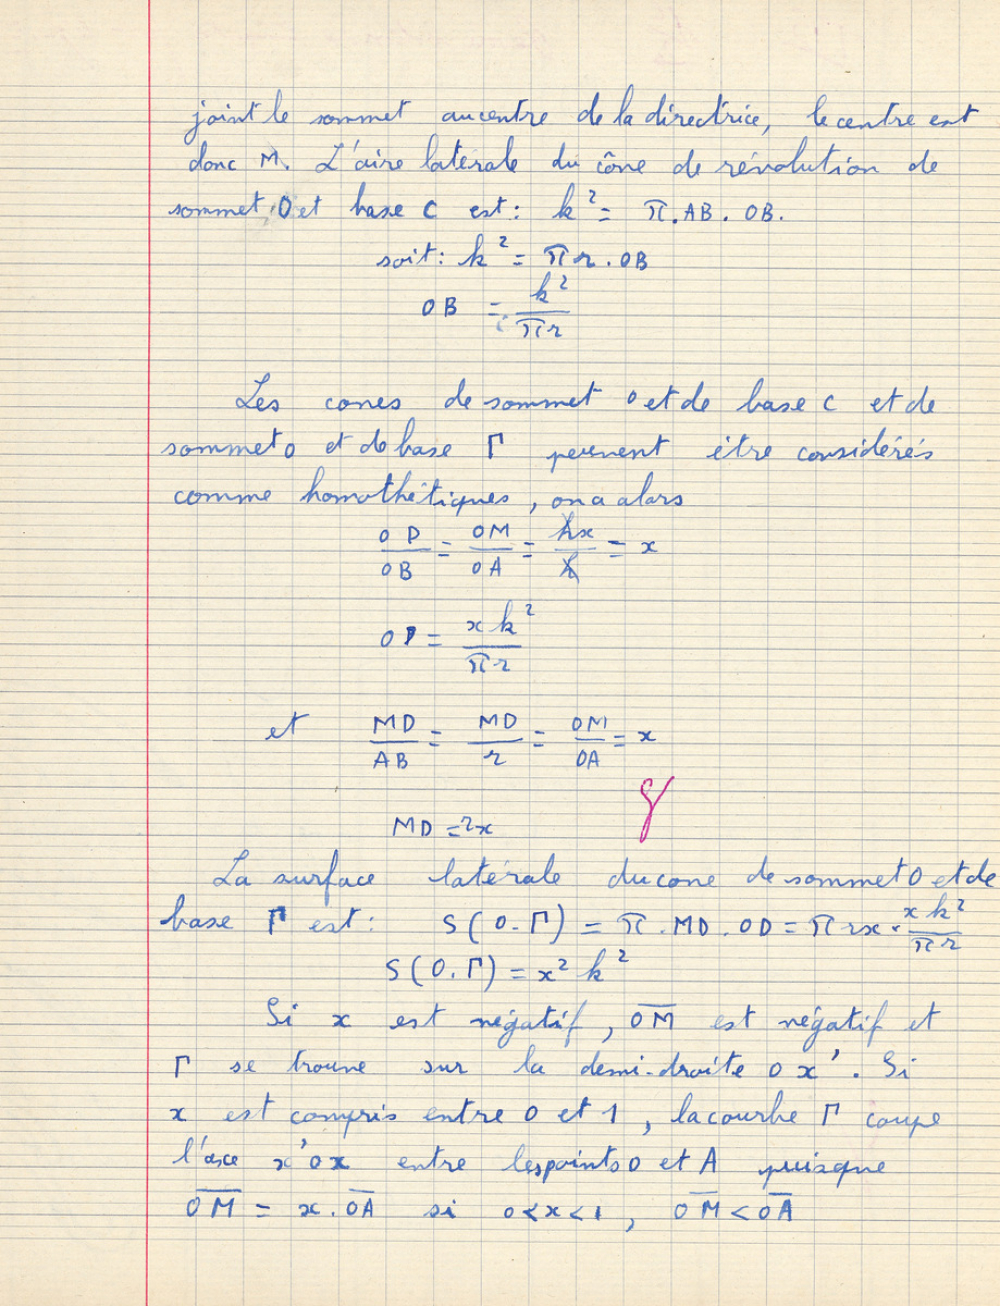 joint le sommet au centre de la directrice, le centre est
donc M. L'aire latérale du cône de révolution de
sommet O et base C est : k² = π . AB . OB.
soit : k² = π r . OB
OB = k² / πr
Les cones de sommet O et de base C et de
sommet O et de base Γ peuvent être considérés
comme homothétiques, on a alors
OD / OB = OM / OA = hx / h = x
OD = x k² / πr
et MD / AB = MD / r = OM / OA = x
MD = rx
La surface latérale du cone de sommet O et de
base Γ est : S(O.Γ) = π . MD . OD = π rx . x k² / πr
S(O.Γ) = x² k²
Si x est négatif, OM est négatif et
Γ se trouve sur la demi-droite O x'. Si
x est compris entre O et 1, la courbe Γ coupe
l'axe x'Ox entre les points O et A puisque
OM = x . OA si 0 < x < 1, OM < OA